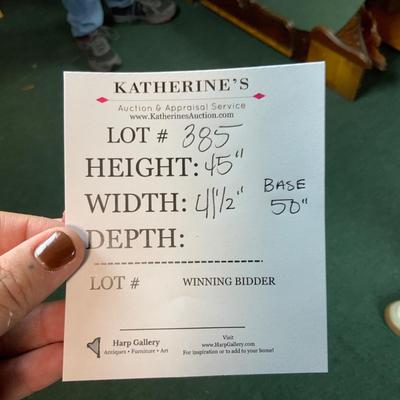 KATHERINE'S
Auction & Appraisal Service
www.KatherinesAuction.com
LOT # 385
HEIGHT: 45"
WIDTH: 41 1/2" BASE 50"
DEPTH:
LOT # WINNING BIDDER
Harp Gallery
Antiques • Furniture • Art
Visit
www.HarpGallery.com
For inspiration or to add to your home!